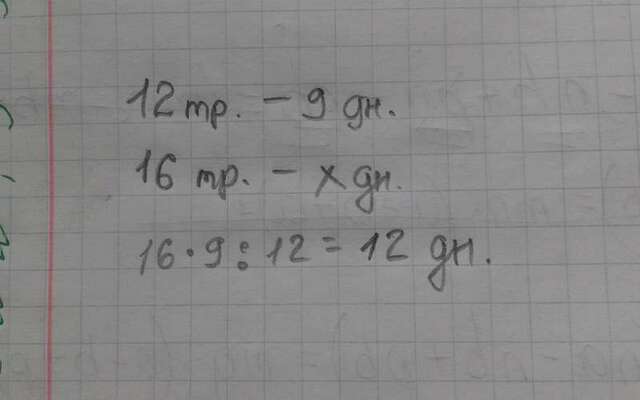 12 тр. – 9 дн.
16 тр. – х дн.
16 · 9 : 12 = 12 дн.